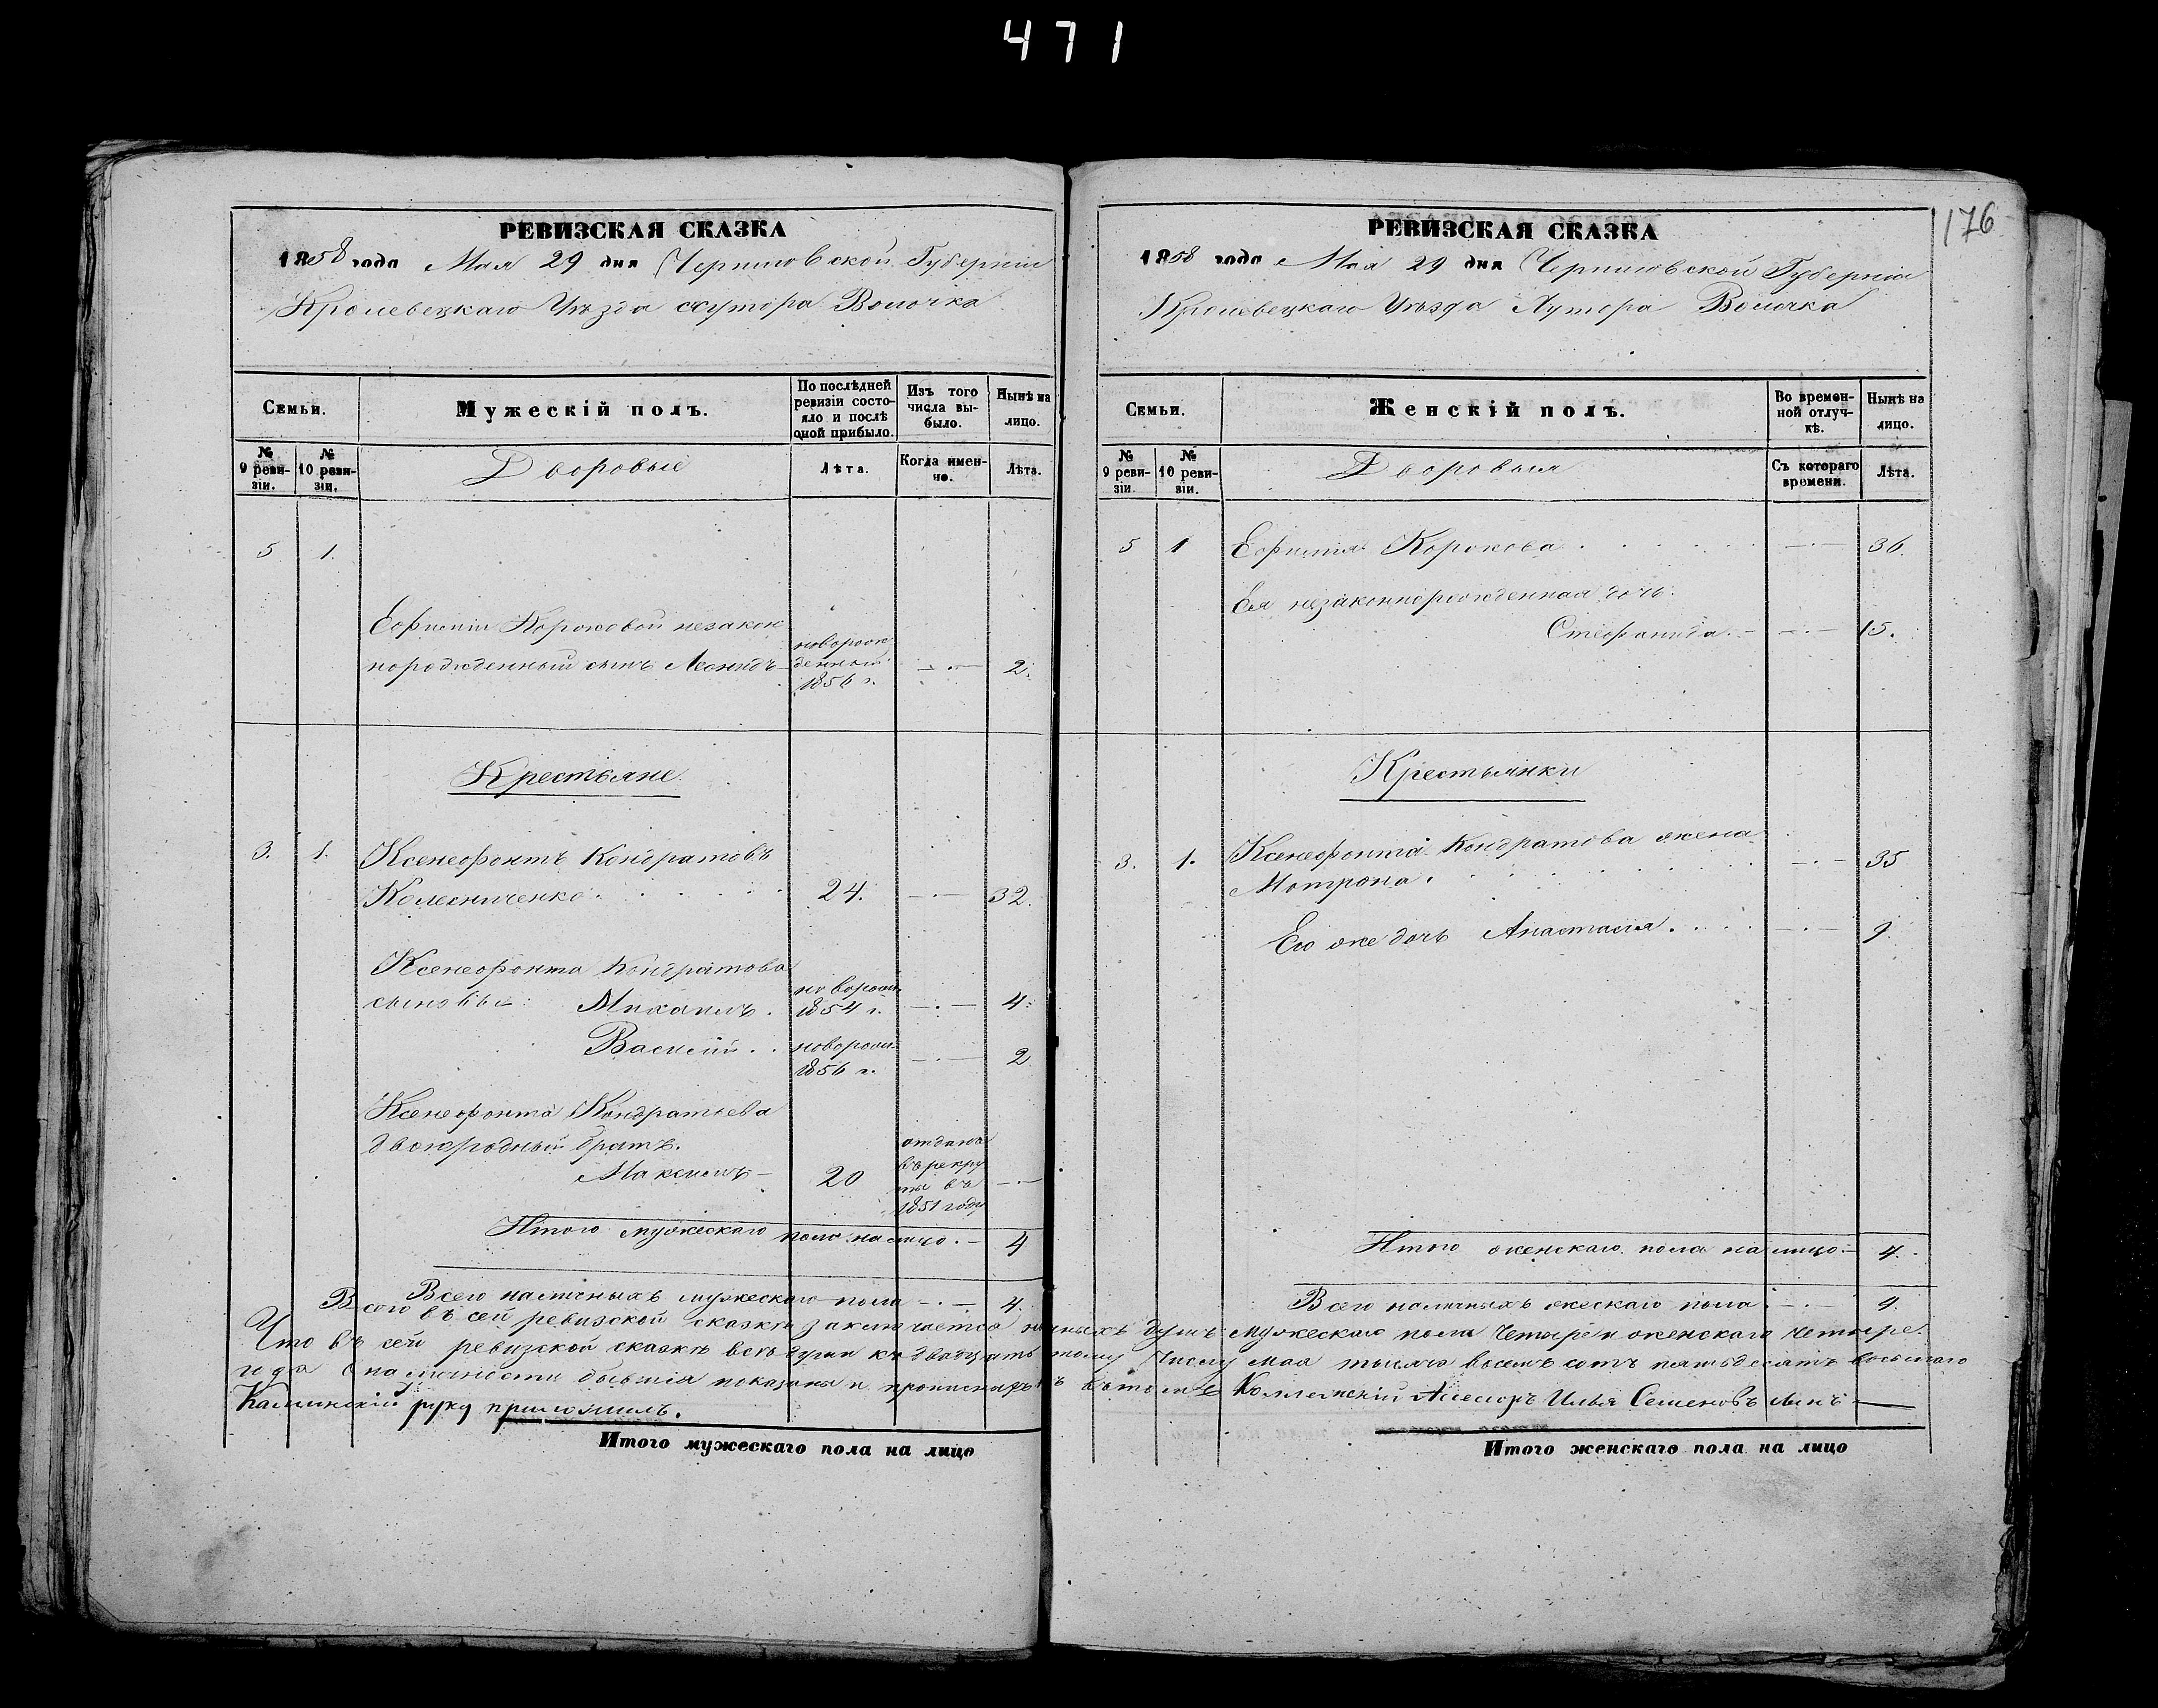 471
РЕВИЗСКАЯ СКАЗКА
1858 года Мая 29 дня Черниговской Губерніи
Кролевецкаго Уѣзда хутора Волочка
Семьи.
Мужескій полъ.
По послѣдней ревизіи состояло и послѣ оной прибыло.
Изъ того числа выбыло.
Нынѣ на лицо.
№ 9 ревизіи.
№ 10 ревизіи.
Дворовые
Лѣта.
Когда именно.
Лѣта.
5 1.
Еофиміи Короковой незакон
норожденный сынъ Леонидъ новорожденный 1856 г. 2.
Крестьяне.
3. 1. Ксенофонтъ Кондратовъ
Колесниченко 24. 32.
Ксенофонта Кондратова
сыновья: Михаилъ. новорожд. 1854 г. 4.
Василій новорожд. 1856 г. 2
Ксенофонта Кондратьева
двоюродный братъ.
Максимъ 20 отданъ въ рекруты въ 1851 году
Итого мужескаго пола на лицо 4
Всего наличныхъ мужескаго пола 4.
РЕВИЗСКАЯ СКАЗКА
176
1858 года Мая 29 дня Черниговской Губерніи
Кролевецкаго Уѣзда Хутора Волочка
Семьи.
Женскій полъ.
Во временной отлучкѣ.
Нынѣ на лицо.
№ 9 ревизіи.
№ 10 ревизіи.
Дворовыя
Съ котораго времени.
Лѣта.
5 1 Еофимія Корокова 36.
Ея незаконнорожденная дочь
Стеофанида 15.
Крестьянки
3. 1. Ксенофонта Кондратова жена
Мотрона. 35
Его же дочь Анастасія. 9.
Итого женскаго пола на лицо 4.
Всего наличныхъ жескаго пола 4.
Всего въ сей ревизской сказкѣ заключается душъ мужескаго пола четыре и женскаго четыре.
Что въ сей ревизской сказкѣ всѣ души къ двадцать числу мая тысяча восемь сотъ пятьдесятъ восьмаго
года наличности бывшія показаны и въ томъ Коллежскій Асесоръ Илья Семеновъ сынъ
Калинскій руку приложилъ.
Итого мужескаго пола на лицо
Итого женскаго пола на лицо